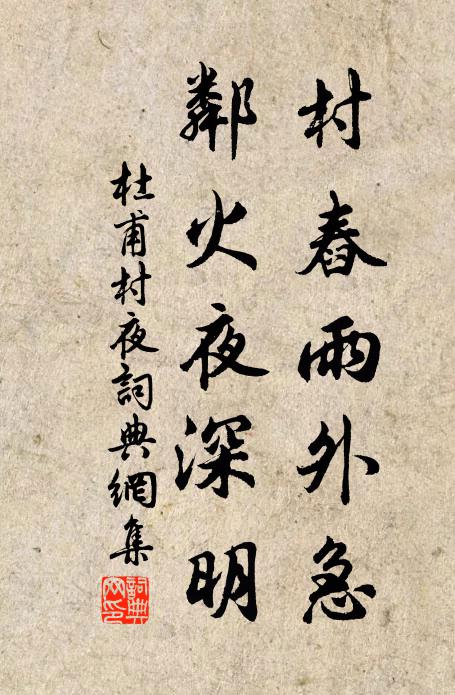 村舂雨外急
鄰火夜深明
杜甫村夜詞典網集
詞典網印